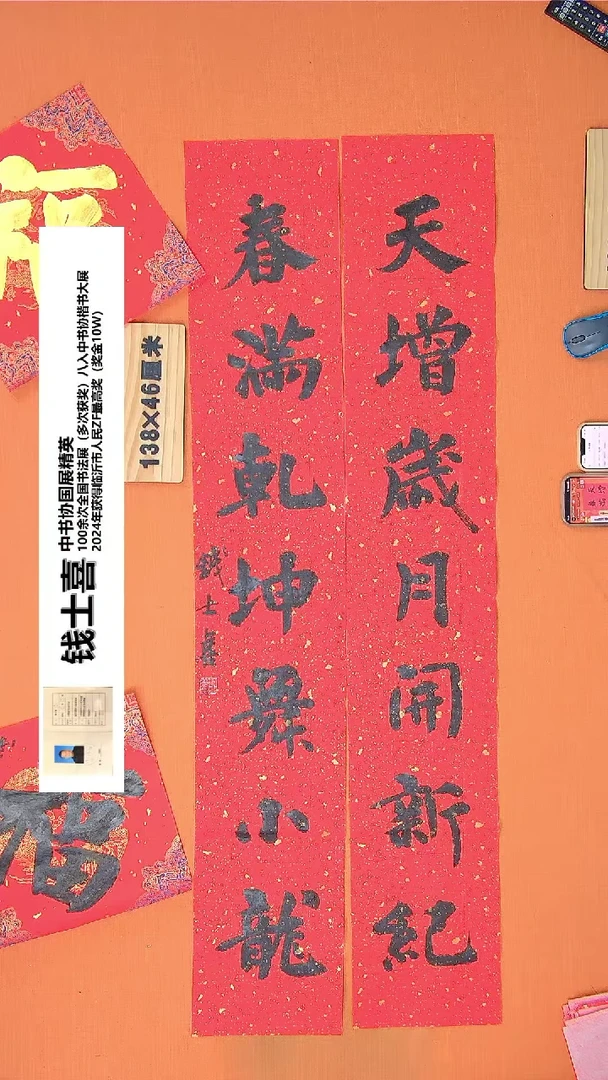 天增歲月開新紀
春滿乾坤舞小龍
錢士喜
138×46厘米
钱士喜
中书协国展精英
100余次全国书法展（多次获奖）八入中书协楷书大展
2024年获得临沂市人民ZF最高奖（奖金10W）
福